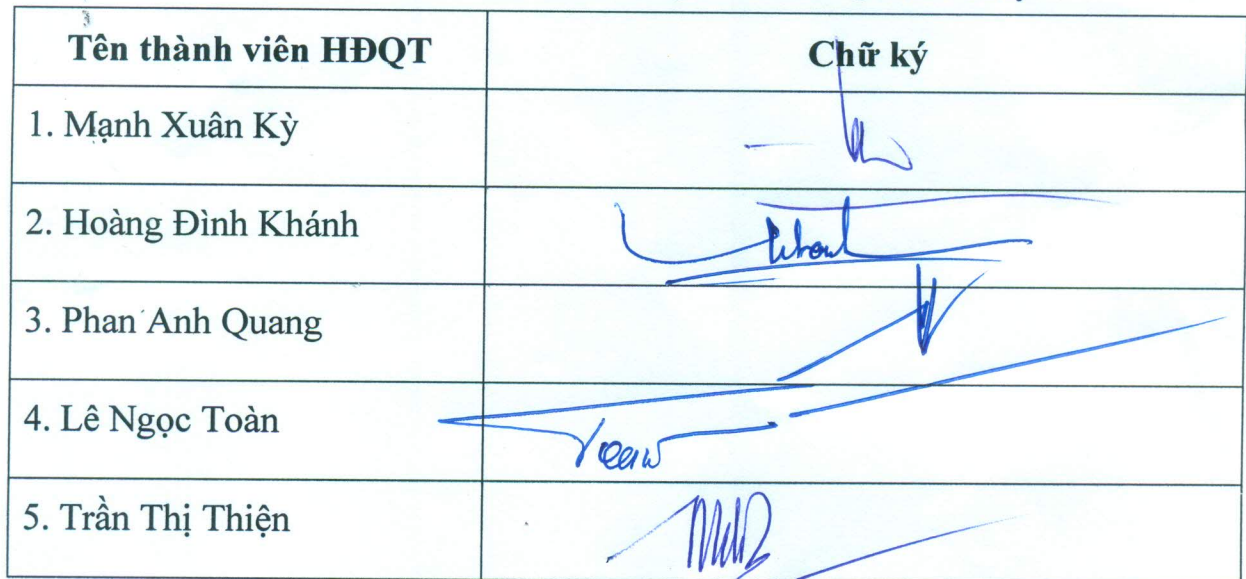 Tên thành viên HĐQT Chữ ký
1. Mạnh Xuân Kỳ
2. Hoàng Đình Khánh
3. Phan Anh Quang
4. Lê Ngọc Toàn
5. Trần Thị Thiện